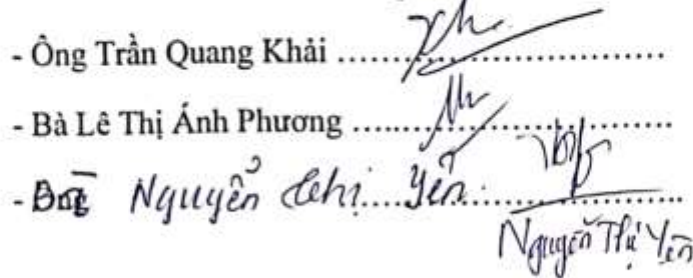 - Ông Trần Quang Khải ....................
- Bà Lê Thị Ánh Phương ....................
- Ông Nguyễn Thị Yến ....................
Nguyễn Thị Yến